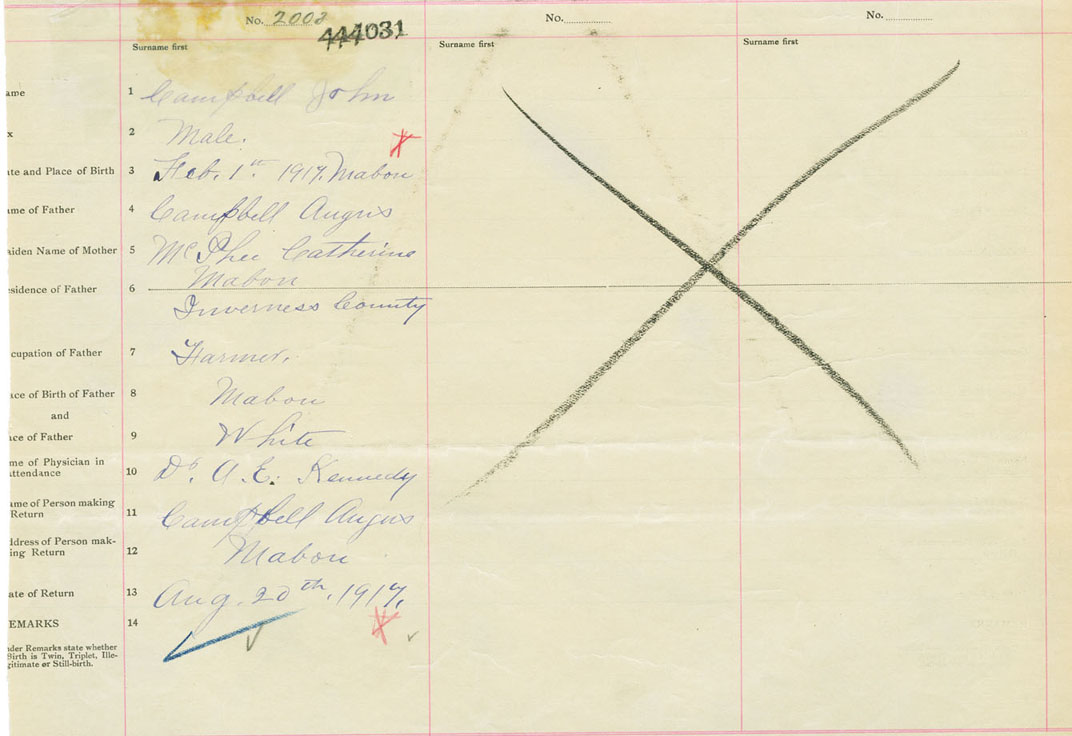 No. 2003 No. No.
444031
Surname first Surname first Surname first
ame 1 Campbell John
x 2 Male.
ate and Place of Birth 3 Feb. 1st. 1917. Mabou
ame of Father 4 Campbell Angus
aiden Name of Mother 5 McPhee Catherine
Mabou
esidence of Father 6
Inverness County
ccupation of Father 7 Farmer.
ace of Birth of Father 8 Mabou
and
ace of Father 9 White
me of Physician in
Attendance 10 Dr. A. E. Kennedy
ame of Person making
Return 11 Campbell Angus
ddress of Person mak-
ing Return 12 Mabou
ate of Return 13 Aug. 20th. 1917.
EMARKS 14
nder Remarks state whether
Birth is Twin, Triplet, Ille-
gitimate or Still-birth.